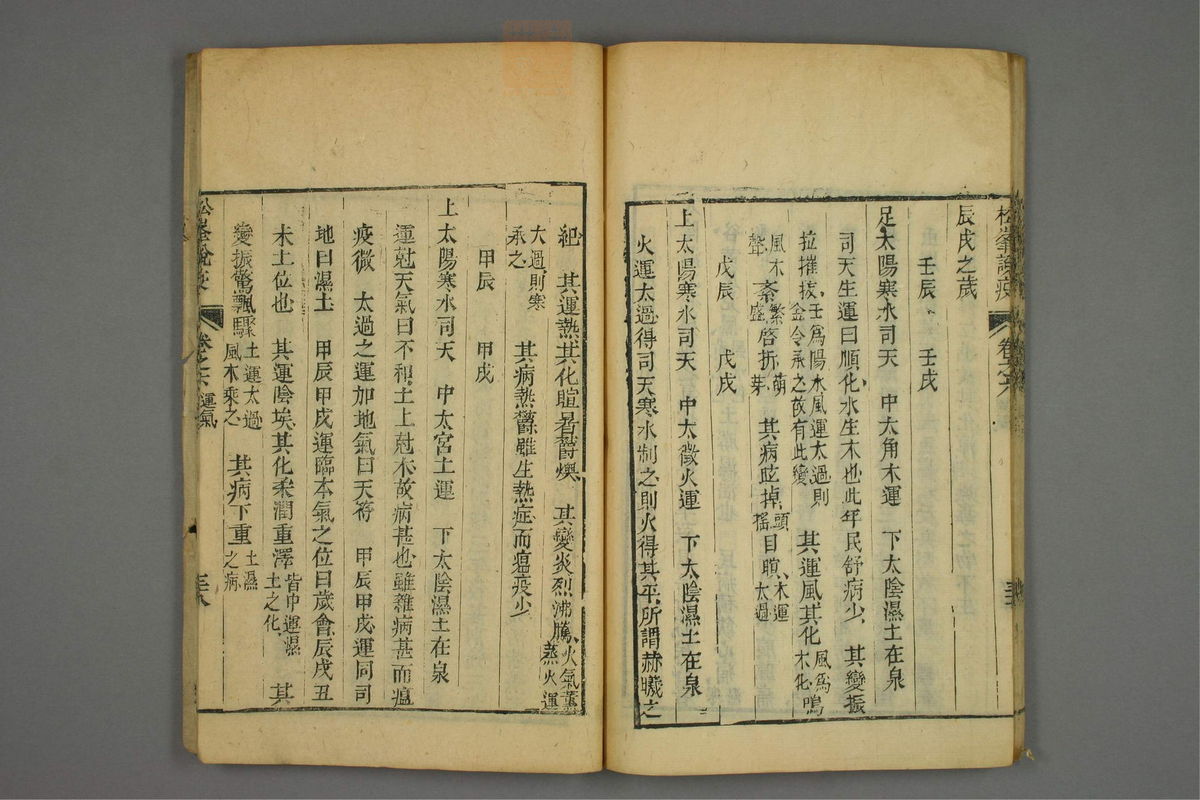 松峯說疫 卷之六
辰戌之歲
壬辰 壬戌
足太陽寒水司天 中太角木運 下太陰濕土在泉
司天生運曰順化水生木也此年民舒病少 其變振
拉摧拔壬爲陽木風運太過則金令承之故有此變 其運風其化風爲木化鳴
紊繁盛啓拆萌芽 其病眩掉頭搖目瞑木運太過
戊辰 戊戌
上太陽寒水司天 中太徵火運 下太陰濕土在泉
火運太過得司天寒水制之則火得其平所謂赫曦之
紀 其運熱其化暄暑鬱燠 其變炎烈沸騰火氣薰蒸火運
太過則寒承之 其病熱鬱雖生熱症而瘟疫少
甲辰 甲戌
上太陽寒水司天 中太宮土運 下太陰濕土在泉
運尅天氣曰不和土上尅水故病甚也雖雜病甚而瘟
疫微 太過之運加地氣曰天符 甲辰甲戌運同司
地曰濕土 甲辰甲戌運臨本氣之位曰歲會辰戌丑
未土位也 其運陰埃其化柔潤重澤皆中運濕土之化 其
變振驚飄驟土運太過風木乘之 其病下重土濕之病
松峯說疫 卷之六運氣